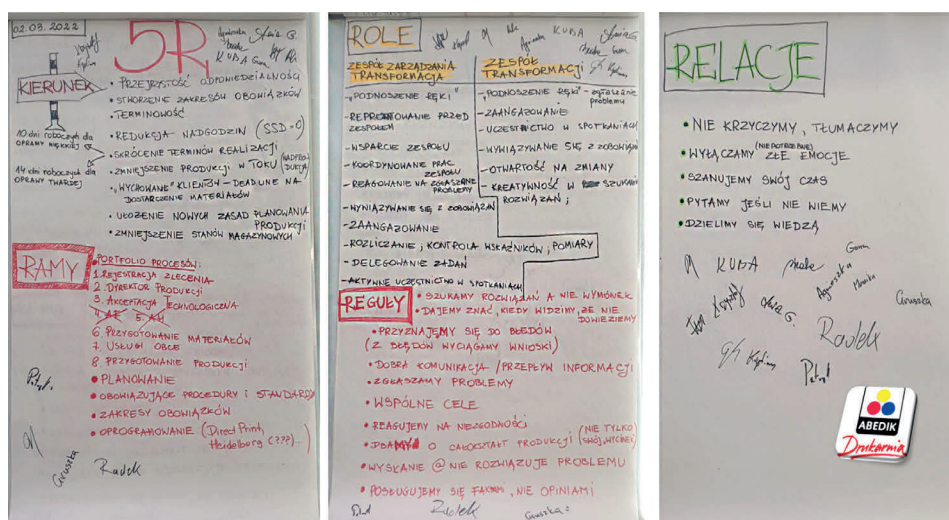 02.03.2022
5R
KUBA
KIERUNEK
10 dni roboczych dla
OPRAWY MIĘKKIEJ
14 dni roboczych dla
OPRAWY TWARDEJ
• PRZEJRZYSTOŚĆ ODPOWIEDZIALNOŚCI
• STWORZENIE ZAKRESÓW OBOWIĄZKÓW
• TERMINOWOŚĆ
• REDUKCJA NADGODZIN (SSD-0)
• SKRÓCENIE TERMINÓW REALIZACJI
• ZMNIEJSZENIE PRODUKCJI W TOKU (NADPRODUKCJA)
• „WYCHOWANE" KLIENTÓW – DEADLINE NA
DOSTARCZENIE MATERIAŁÓW
• UŁOŻENIE NOWYCH ZASAD PLANOWANIA
PRODUKCJI
• ZMNIEJSZENIE STANÓW MAGAZYNOWYCH
RAMY
• PORTFOLIO PROCESÓW:
1. REJESTRACJA ZLECENIA
2. DYREKTOR PRODUKCJI
3. AKCEPTACJA TECHNOLOGICZNA
4. AE 5. AH
6. PRZYGOTOWANIE MATERIAŁÓW
7. USŁUGI OBCE
8. PRZYGOTOWANIE PRODUKCJI
• PLANOWANIE
• OBOWIĄZUJĄCE PROCEDURY I STANDARDY
• ZAKRESY OBOWIĄZKÓW
• OPROGRAMOWANIE (Direct Print,
Heidelberg (???)...)
Gruszka Radek
ROLE
KUBA
ZESPÓŁ ZARZĄDZANIA
TRANSFORMACJĄ
- „PODNOSZENIE RĘKI"
- REPREZENTOWANIE PRZED
ZESPOŁEM
- WSPARCIE ZESPOŁU
- KOORDYNOWANIE PRAC
ZESPOŁU
- REAGOWANIE NA ZGŁASZANE
PROBLEMY
- WYWIĄZYWANIE SIĘ Z ZOBOWIĄZAŃ
- ZAANGAŻOWANIE
- ROZLICZANIE ; KONTROLA WSKAŹNIKÓW ; POMIARY
- DELEGOWANIE ZADAŃ
- AKTYWNE UCZESTNICTWO W SPOTKANIACH
ZESPÓŁ
TRANSFORMACJI
- „PODNOSZENIE RĘKI" - zgłaszanie
problemu
- ZAANGAŻOWANIE
- UCZESTNICTWO W SPOTKANIACH
- WYWIĄZYWANIE SIĘ Z ZOBOWIĄZAŃ
- OTWARTOŚĆ NA ZMIANY
- KREATYWNOŚĆ W SZUKANIU
ROZWIĄZAŃ ;
REGUŁY
• SZUKAMY ROZWIĄZAŃ A NIE WYMÓWEK
• DAJEMY ZNAĆ, KIEDY WIDZIMY, ŻE NIE
DOWIEZIEMY
• PRZYZNAJEMY SIĘ DO BŁĘDÓW
(Z BŁĘDÓW WYCIĄGAMY WNIOSKI)
• DOBRA KOMUNIKACJA / PRZEPŁYW INFORMACJI
• ZGŁASZAMY PROBLEMY
• WSPÓLNE CELE
• REAGUJEMY NA NIEZGODNOŚCI
• DBAMY O CAŁOKSZTAŁT PRODUKCJI (NIE TYLKO SWÓJ „WYCINEK")
• WYSŁANIE @ NIE ROZWIĄZUJE PROBLEMU
• POSŁUGUJEMY SIĘ FAKTAMI, NIE OPINIAMI
Radek Gruszka
RELACJE
• NIE KRZYCZYMY, TŁUMACZYMY
• WYŁĄCZAMY (NIEPOTRZEBNE) ZŁE EMOCJE
• SZANUJEMY SWÓJ CZAS
• PYTAMY JEŚLI NIE WIEMY
• DZIELIMY SIĘ WIEDZĄ
KUBA
Agnieszka
Monika
Gruszka
Krzysztof
Radek
Patryk
ABEDIK
Drukarnia